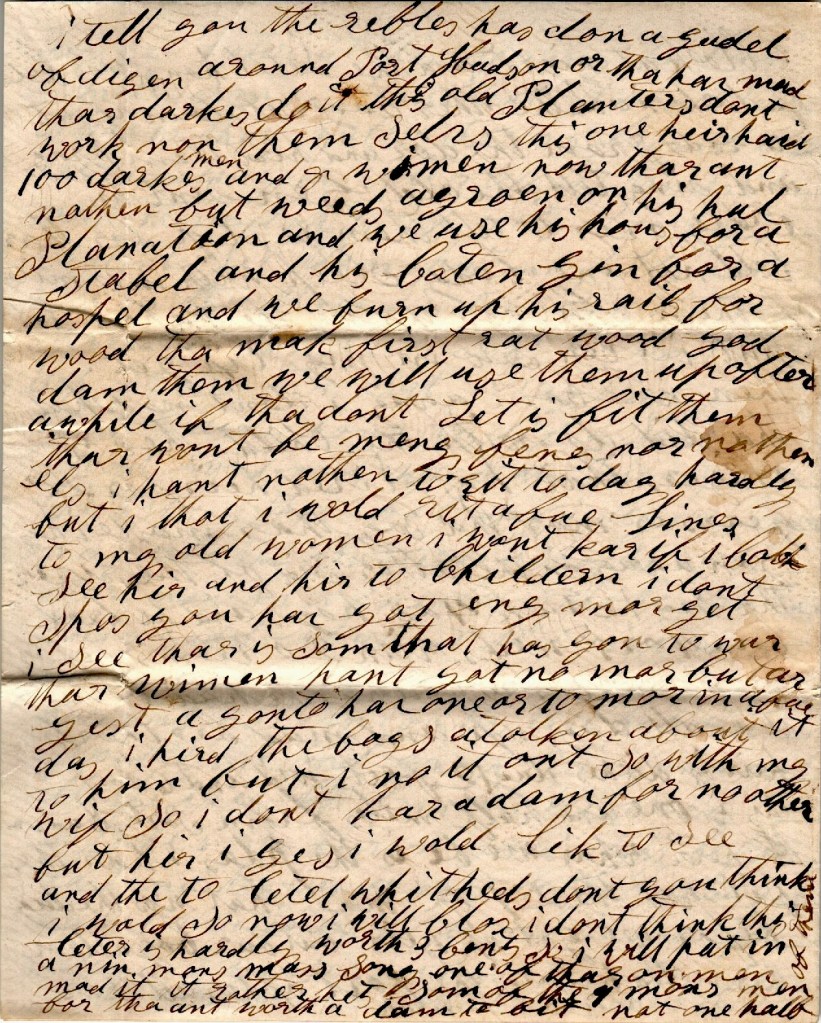 i tell you the rebles has don a gudel
of digen around Port Hudson or tha har mad
thar darkes do it this old Planters dont
work non them Selvs this one heir haid
100 darkes men and wimen now thar ant
nothen but weeds agroen on his hul
Planation and we use his hous for a
Stabel and his Coten gin for a
hospel and we burn up his rails for
wood tha mak first rat wood god
dam them we will use them up after
awhile if tha dont Let is fit them
thar wont be meny fens nor nothen
els i hant nothen to rit to day hardly
but i thot i wold rit a fue Lines
to my old women i wont kar if i
See hir and hir to Childern i dont
Spos you har got eny mor yet
i See thar is Som that has gon to war
thar wimen hant got no mor but ar
yest a gon to har one or to mor in a fue
day i hird the boys a talken about it
to him but i no it ont So with my
wif So i dont kar a dam for no other
but hir i ges i wold lik to See
and the to letel whit heds dont you think
i wold So now i will Clos i dont think this
leter is hardly worth 3 Cents So i will put in
a nin mons mans Song one of thar on men
mad it it rather hits Som of the 9 mons men
for tha ant worth a dam to fit not one half
of them